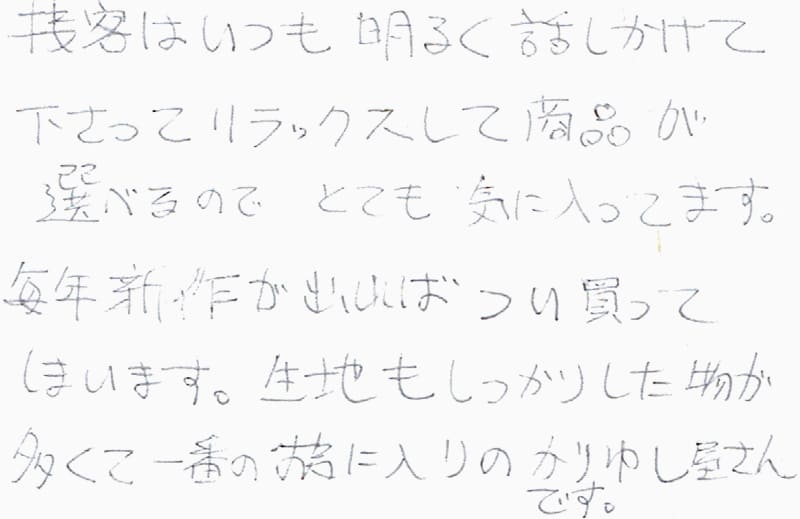 接客はいつも明るく話しかけて
下さってリラックスして商品が
選べるので とても気に入ってます。
毎年新作が出ればつい買って
しまいます。生地もしっかりした物が
多くて一番のお気に入りのかりゆし屋さん
です。